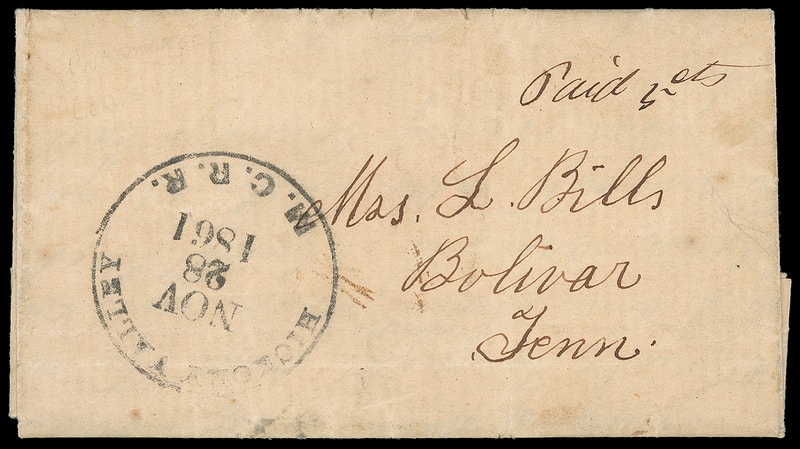 Paid 5 cts
Mrs. L. Bills
Bolivar
Tenn.
HICKORY VALLEY
NOV
28
1861
M.C.R.R.